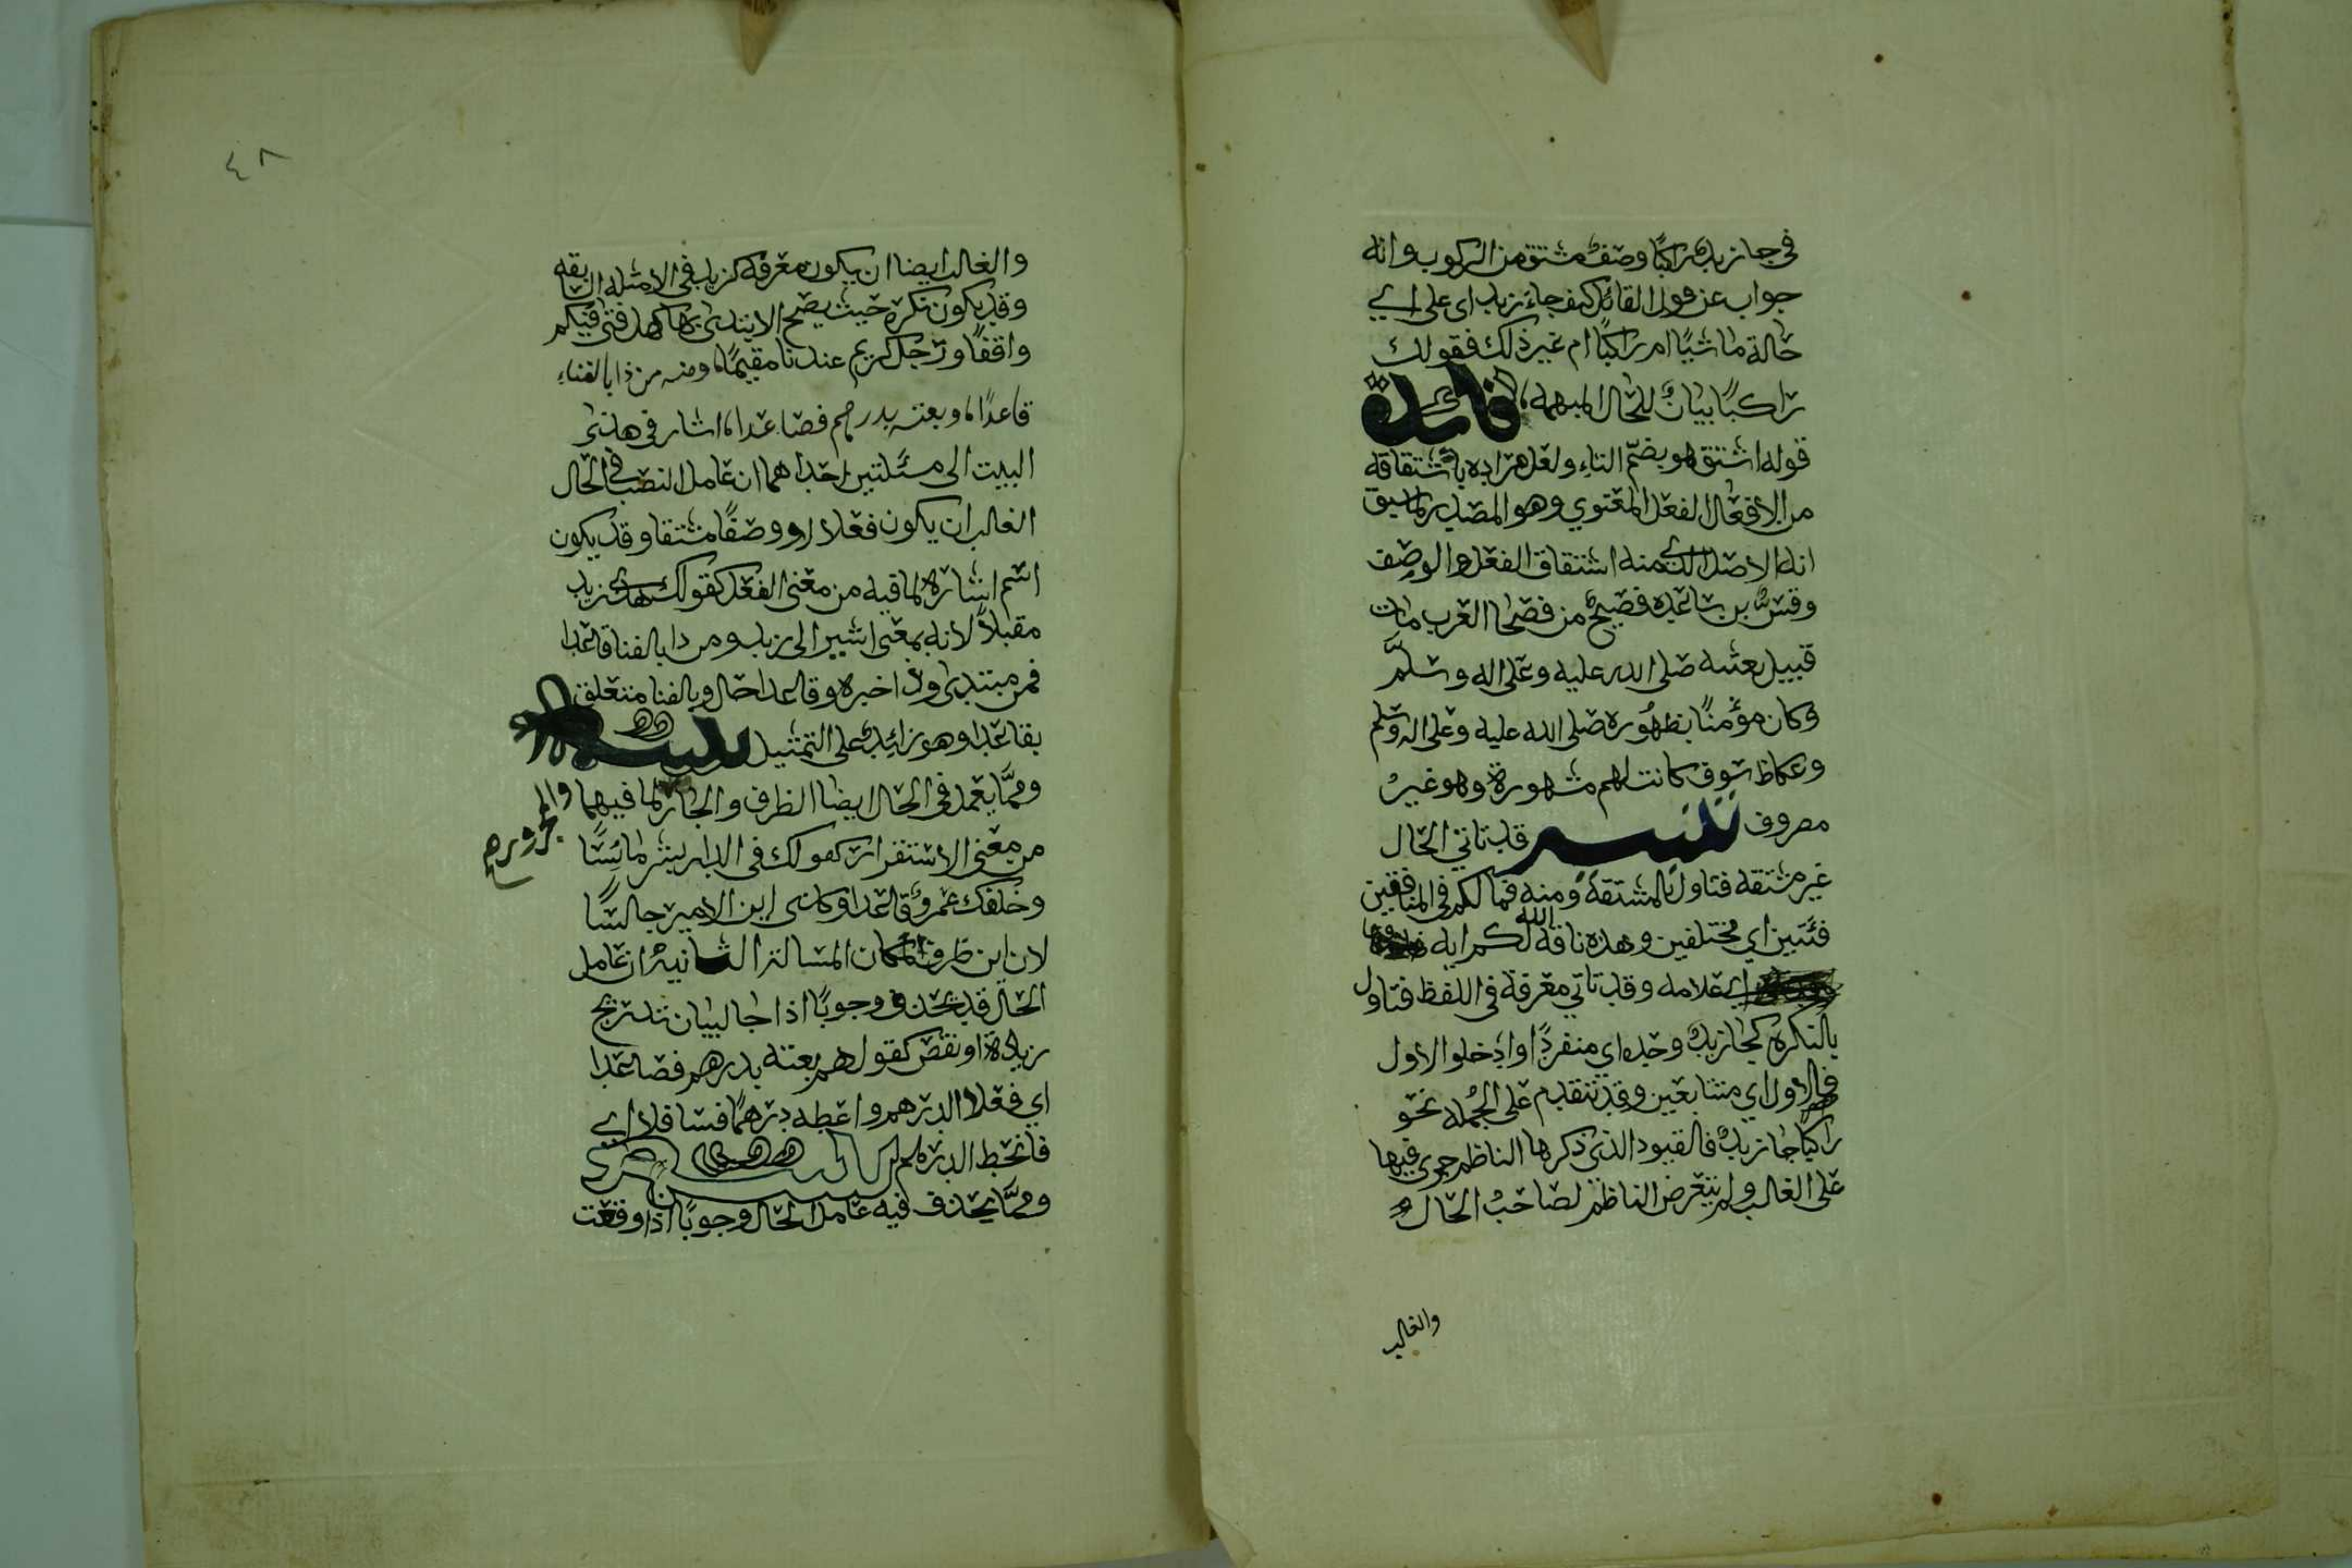 في جا زيدٌ راكبًا وصفٌ مشتق من الركوب وانه
جواب عن قول القائل كيف جاء زيد اى على اي
حالة ماشيًا ام راكبًا ام غير ذلك فقولك
راكبًا بيانٌ للحال المبهمه فائدة
قوله اشتق هو بضم التاء ولعل مراده باشتقاقه
من الافعال الفعل المعنوي وهو المصدر لما سبق
انه الاصل الذي منه اشتقاق الفعل والوصف
وقسُّ بن ساعده فصيحٌ من فصحا العرب مات
قبيل بعثه صلى الله عليه وعلى اله وسلَّم
وكان مؤمنًا بظهوره صلى الله عليه وعلى اله وسلم
وعكاظ سوق كانت لهم مشهورة وهو غيرُ
مصروف تنبيه قد تاتي الحال
غير مشتقه فتاول بالمشتقة ومنه فما لكم في المنافقين
فئتين اي مختلفين وهذه ناقة الله لكم ايه
اي علامه وقد تاتي معرفة في اللفظ فتاول
بالنكرة كجا زيدٌ وحده اي منفردًا وادخلوا الاول
فالاول اي متتابعين وقد تتقدم على الجمله نحو
راكبًا جا زيدٌ فالقيود الذي ذكرها الناظم جرى فيها
على الغالب ولم يتعرض الناظم لصاحب الحال
والغالب
٤٨
والغالب ايضا ان يكون معرفة كزيد في الامثله السابقه
وقد يكون نكرة حيث يصح الابتدى بها كهل فتى فيكم
واقفًا ورجل كريم عندنا مقيمًا ومنه من ذا بالفناء
قاعدًا وبعته بدرهم فصاعدا اشار في هذى
البيت الى مسئلتين احداهما ان عامل النصب في الحال
الغالب ان يكون فعلا او وصفًا مشتقا وقد يكون
اسم اشارة لما فيه من معنى الفعل كقولك هذى زيد
مقبلاً لانه بمعنى اشير الى زيد ومن ذا بالفنا قاعدا
فمن مبتدى وذا خبره وقاعدا حال وبالفنا متعلق
بقاعدا وهو زائد على التمثيل تنبيه
ومما يعمل في الحال ايضا الظرف والجار لما فيهما
والمجرور صح
من معنى الاستقرار كقولك في الدار بشر مائسًا
وخلفك عمرو قاعدا وكاني اين الامير جالسًا
لان اين ظرف المكان المسالة الثانية ان عامل
الحال قد يحذف وجوبًا اذا جا لبيان تدريج
زيادة او نقص كقولهم بعته بدرهم فصاعدا
اي فعلا الدرهم واعطه درهمًا فسافلا اي
فانحط الدرهم
ومما يحذف فيه عامل الحال وجوبًا اذا وقعت